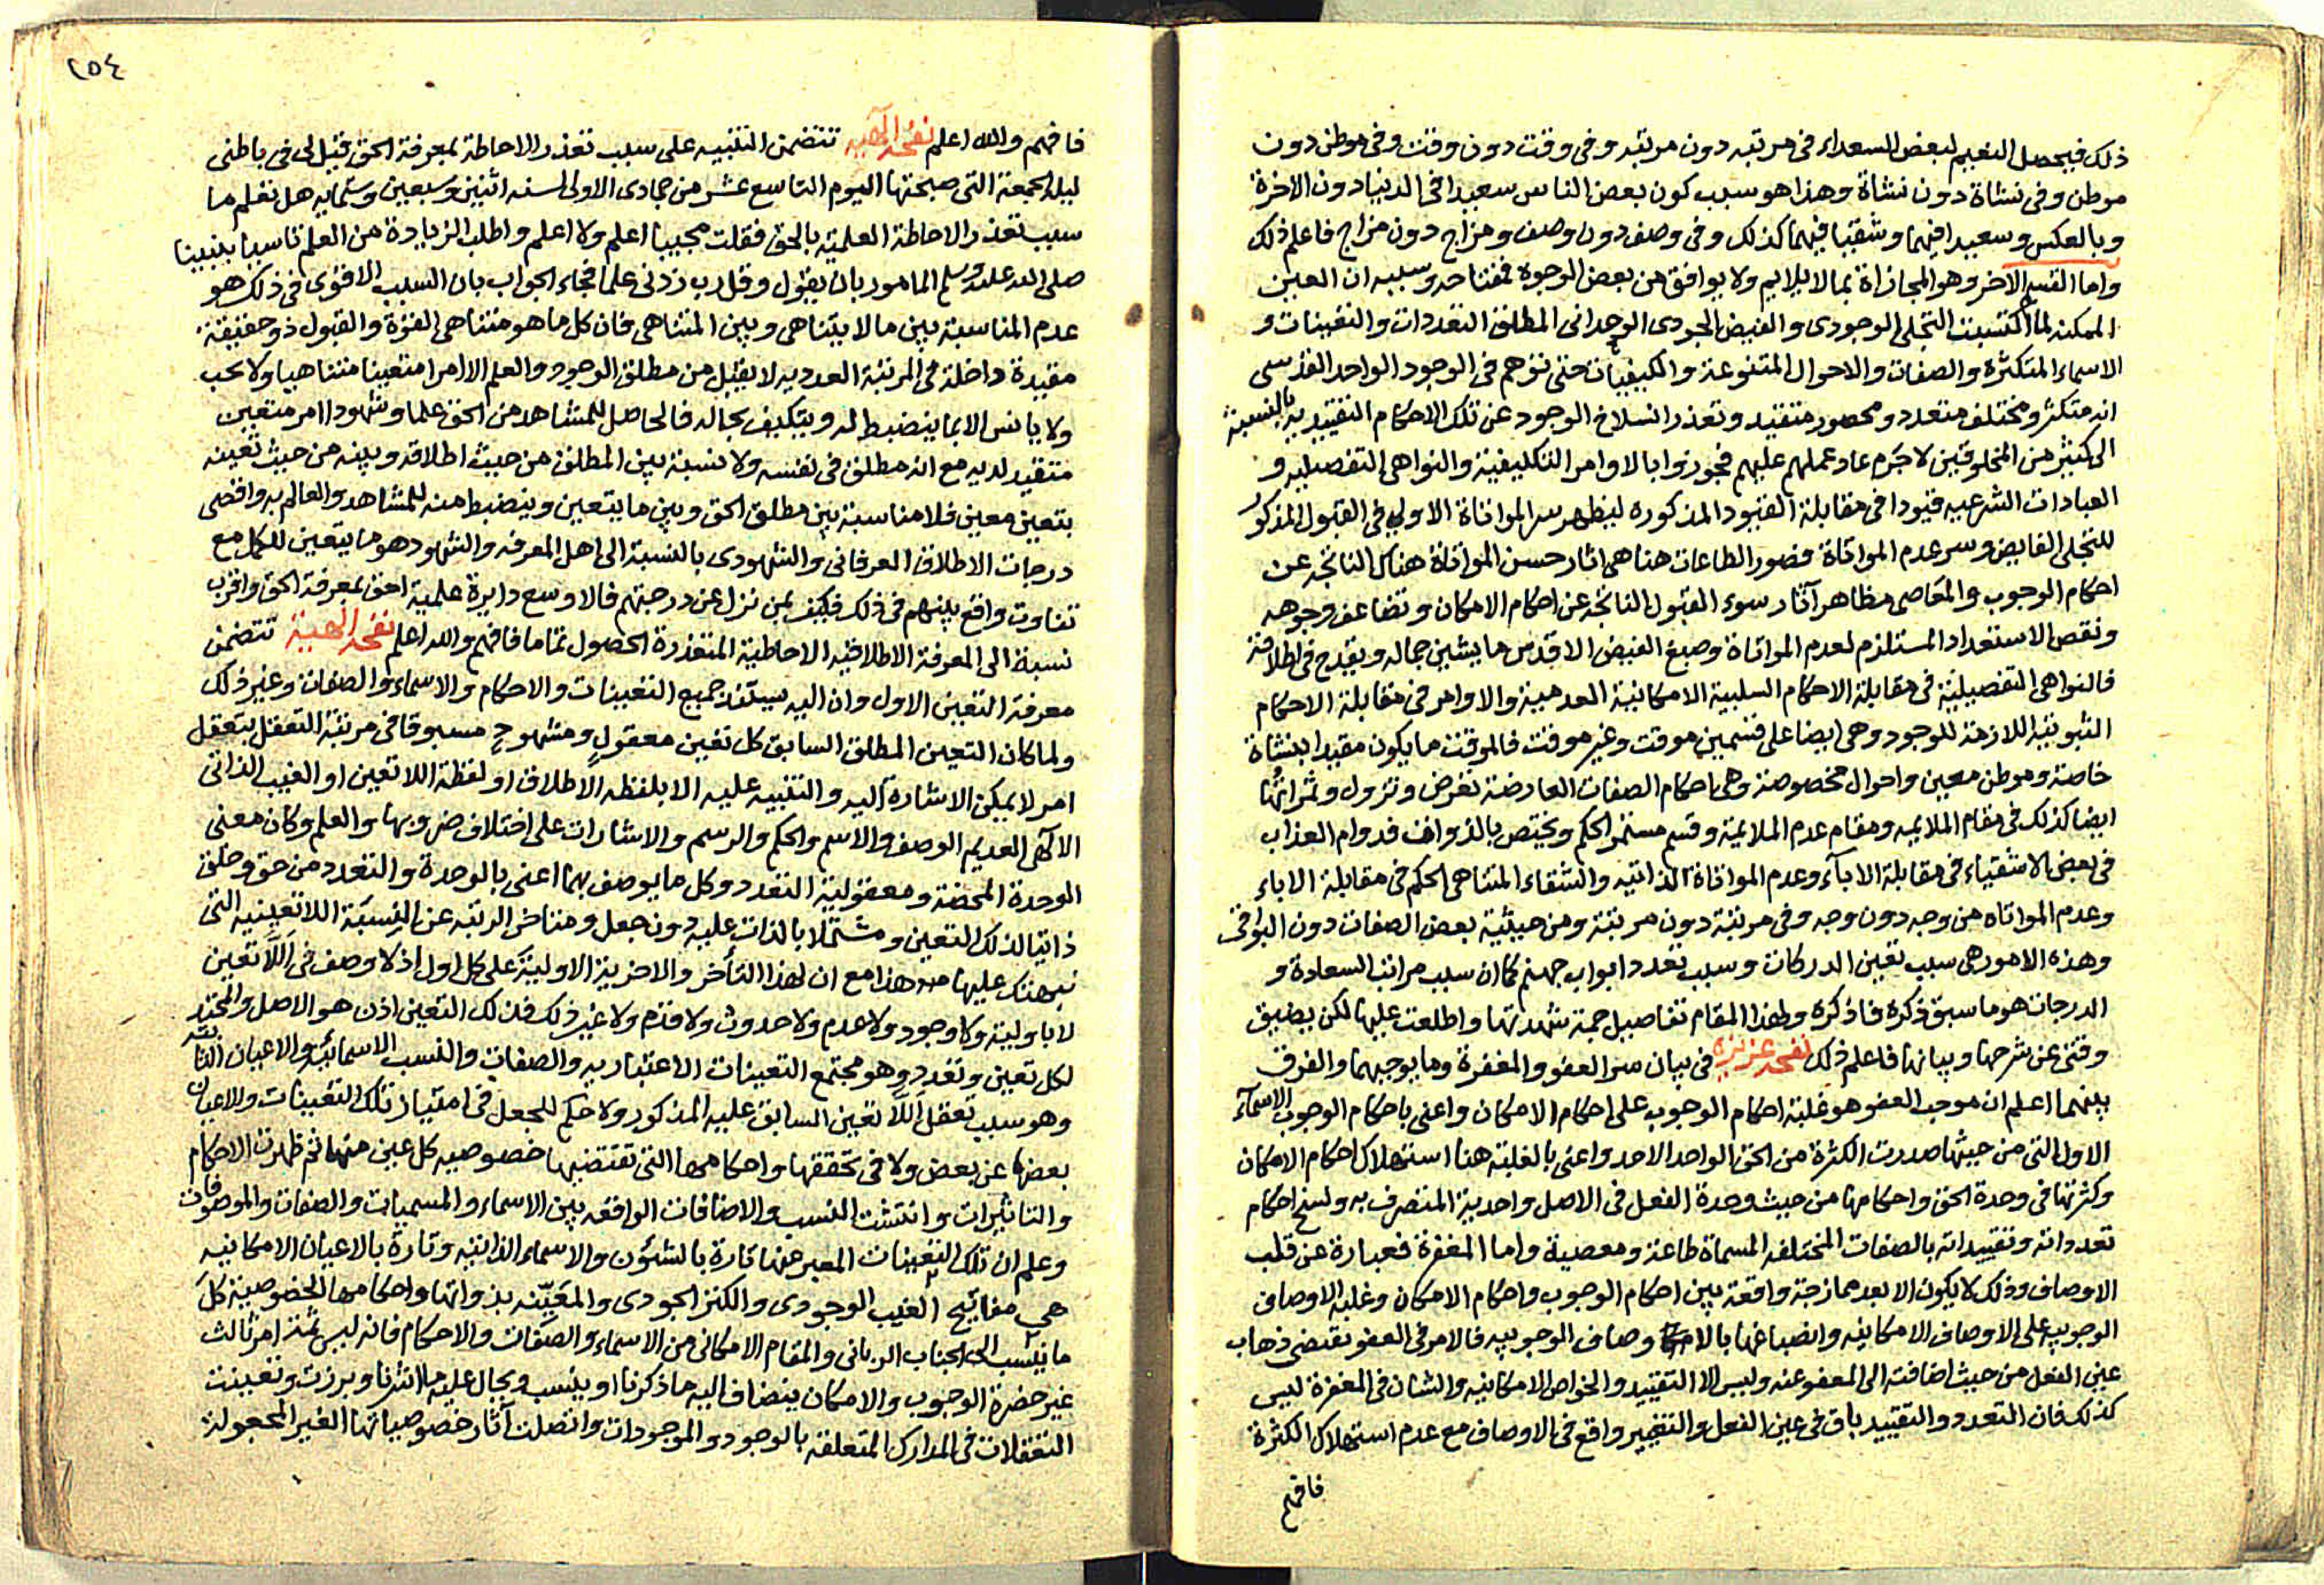 ذلك فيحصل النعيم لبعض السعداء فى مرتبه دون مرتبه وفى وقت دون وقت وفى موطن دون
موطن وفى نشاة دون نشاة وهذا هو سبب كون بعض الناس سعيدا فى الدنيا دون الاخرة
وبالعكس وسعيدا فيهما وشقيا فيهما كذلك وفى وصف دون وصف ومزاج دون مزاج فاعلم ذلك
واما القسم الاخر وهو المجازاة بما لا يلايم ولا يوافق من بعض الوجوه فمفتاحه وسببه ان العين
الممكنه لما اكتسبت التجلى الوجودى والفيض الجودى الوحدانى المطلق التعددات والتعينات و
الاسماء المتكثرة والصفات والاحوال المتنوعة والكيفيات حتى توهم فى الوجود الواحد القدسى
انه متكثر ومختلف متعدد ومحصور متقيد وتعذر انسلاخ الوجود عن تلك الاحكام التقييديه بالنسبة
الى كثير من المخلوقين لا جرم عاد عملهم عليهم فجوزوا بالاوامر التكليفية والنواهى التفصيليه و
العبادات الشرعيه قيودا فى مقابلة القيود المذكوره ليظهر سر المواتاة الاولى فى القبول المذكور
للتجلى الفايض وسر عدم المواتاة فصور الطاعات هنا هى اثار حسن المواتاة هناك الناتجه عن
احكام الوجوب والمعاصى مظاهر آثار سوء القبول الناتجه عن احكام الامكان وتضاعف وجوهه
ونقص الاستعداد المستلزم لعدم المواتاة وصبغ الفيض الاقدس ما يشين جماله ويقدح فى اطلاقه
فالنواهى التفصيلية فى مقابلة الاحكام السلبية الامكانية العدمية والاوامر فى مقابلة الاحكام
الثبوتية اللازمة للوجود وهى ايضا على قسمين موقت وغير موقت فالموقت ما يكون مقيدا بنشاة
خاصة وموطن معين واحوال مخصوصة وهى احكام الصفات العارضة تعرض وتزول وثمراتها
ايضا كذلك فى مقام الملايمه ومقام عدم الملايمة وقسم مستمر الحكم ويختص بالذوات فدوام العذاب
فى بعض الاشقياء فى مقابلة الاباء وعدم المواتاة الذاتيه والشقاء المتناهى الحكم فى مقابلة الاباء
وعدم المواتاه من وجه دون وجه وفى مرتبة دون مرتبة ومن حيثية بعض الصفات دون البواقى
وهذه الامور هى سبب تعين الدركات وسبب تعدد ابواب جهنم كما ان سبب مراتب السعادة و
الدرجات هو ما سبق ذكره فاذكره ولهذا المقام تفاصيل جمة شهدتها واطلعت عليها لكن يضيق
وقتى عن شرحها وبيانها فاعلم ذلك نفحه عزيزه فى بيان سر العفو والمغفرة وما يوجبهما والفرق
بينهما اعلم ان موجب العفو هو غلبة احكام الوجوب على احكام الامكان واعنى باحكام الوجوب الاسماء
الاول التى من حيثها صدرت الكثرة من الحق الواحد الاحد واعنى بالغلبة هنا استهلاك احكام الامكان
وكثرتها فى وحدة الحق واحكامها من حيث وحدة الفعل فى الاصل واحدية المتصرف به ولسخ احكام
تعدداته وتقييداته بالصفات المختلفه المسماة طاعة ومعصية واما المغفرة فعبارة عن قلب
الاوصاف وذلك لا يكون الا بعد ممازجة واقعة بين احكام الوجوب واحكام الامكان وغلبه الاوصاف
الوجوبيه على الاوصاف الامكانيه وانصباغها بالاوصاف الوجوبيه فالامر فى العفو يقتضى ذهاب
عين الفعل من حيث اضافته الى المعفو عنه وليس الا التقييد والخواص الامكانيه والشان فى المغفرة ليس
كذلك فان التعدد والتقييد باق فى عين الفعل والتغيير واقع فى الاوصاف مع عدم استهلاك الكثرة
فافهم
٢٥٤
فافهم والله اعلم نفحه الهيه تتضمن التنبيه على سبب تعذر الاحاطة بمعرفة الحق قيل لى فى باطنى
ليلة الجمعة التى صبحتها اليوم التاسع عشر من جمادى الاولى لسنه اثنين وسبعين وستمايه هل تعلم ما
سبب تعذر الاحاطة العلمية بالحق فقلت مجيبا اعلم ولا اعلم واطلب الزيادة من العلم تاسيا بنبينا
صلى الله عليه وسلم المامور بان يقول وقل رب زدنى علما فجاء الجواب بان السبب الاقوى فى ذلك هو
عدم المناسبة بين ما لا يتناهى وبين المتناهى فان كل ما هو متناهى القوة والقبول ذو حقيقة
مقيدة داخلة فى المرتبة العدديه لا يقبل من مطلق الوجود والعلم الا امرا متعينا متناهيا ولا يحب
ولا يانس الا بما ينضبط له ويتكيف بحاله فالحاصل للمشاهد من الحق علما وشهودا امر متعين
متقيد لديه مع انه مطلق فى نفسه ولا نسبة بين المطلق من حيث اطلاقه وبينه من حيث تعينه
بتعين معين فلا مناسبة بين مطلق الحق وبين ما يتعين وينضبط منه للمشاهد والعالم به واقصى
درجات الاطلاق العرفانى والشهودى بالنسبة الى اهل المعرفه والشهود هو ما يتعين للكمل مع
تفاوت واقع بينهم فى ذلك فكيف بمن نزل عن درجتهم فالاوسع دايرة علمية احق بمعرفة الحق واقرب
نسبة الى المعرفة الاطلاقيه الاحاطية المتعذرة الحصول تماما فافهم والله اعلم نفحه الهية تتضمن
معرفة التعين الاول وان اليه يستند جميع التعينات والاحكام والاسماء والصفات وغير ذلك
ولما كان التعين المطلق السابق كل تعين معقول ومشهود مسبوقا فى مرتبة التعقل بتعقل
امر لا يمكن الاشارة اليه والتنبيه عليه الا بلفظه الاطلاق او لفظة اللاتعين او الغيب الذاتى
الالهى العديم الوصف والاسم والحكم والرسم والاشارات على اختلاف ضروبها والعلم وكان معنى
الوحدة المحضة ومعقولية التعدد وكل ما يوصف بهما اعنى بالوحدة والتعدد من حق وخلق
ذاتيا لذلك التعين ومشتملا بالذات عليه دون جعل ومتاخر الرتبه عن النسبة اللاتعينيه التى
نبهتك عليها هذا مع ان لهذا التأخر والاخرية الاولية على كل اول اذ لا وصف فى اللاتعين
لا باولية ولا وجود ولا عدم ولا حدوث ولا قدم ولا غير ذلك فذلك التعين اذن هو الاصل والمحتد
لكل تعين وتعدد وهو مجتمع التعينات الاعتباريه والصفات والنسب الاسمائيه والاعيان الثابته
وهو سبب تعقل اللاتعين السابق عليه المذكور ولا حكم للجعل فى امتياز تلك التعينات والاعيان
بعضها عن بعض ولا فى تحققها واحكامها التى تقتضيها خصوصيه كل عين منها ثم ظهرت الاحكام
والتاثيرات وانتشت النسب والاضافات الواقعه بين الاسماء والمسميات والصفات والموصوفات
وعلم ان تلك التعينات المعبر عنها تارة بالشؤن والاسماء الذاتيه وتارة بالاعيان الامكانيه
هى مفاتيح الغيب الوجودى والكنز الجودى والمعينه بذواتها واحكامها الخصوصية كل
ما ينسب الى الجناب الربانى والمقام الامكانى من الاسماء والصفات والاحكام فانه ليس ثمة امر ثالث
غير حضرة الوجوب والامكان ينضاف اليه ما ذكرنا او ينسب ويحال عليه ما اشرنا وبرزت وتعينت
التعقلات فى المدارك المتعلقه بالوجود والموجودات واتصلت آثار خصوصياتها الغير المجعولة